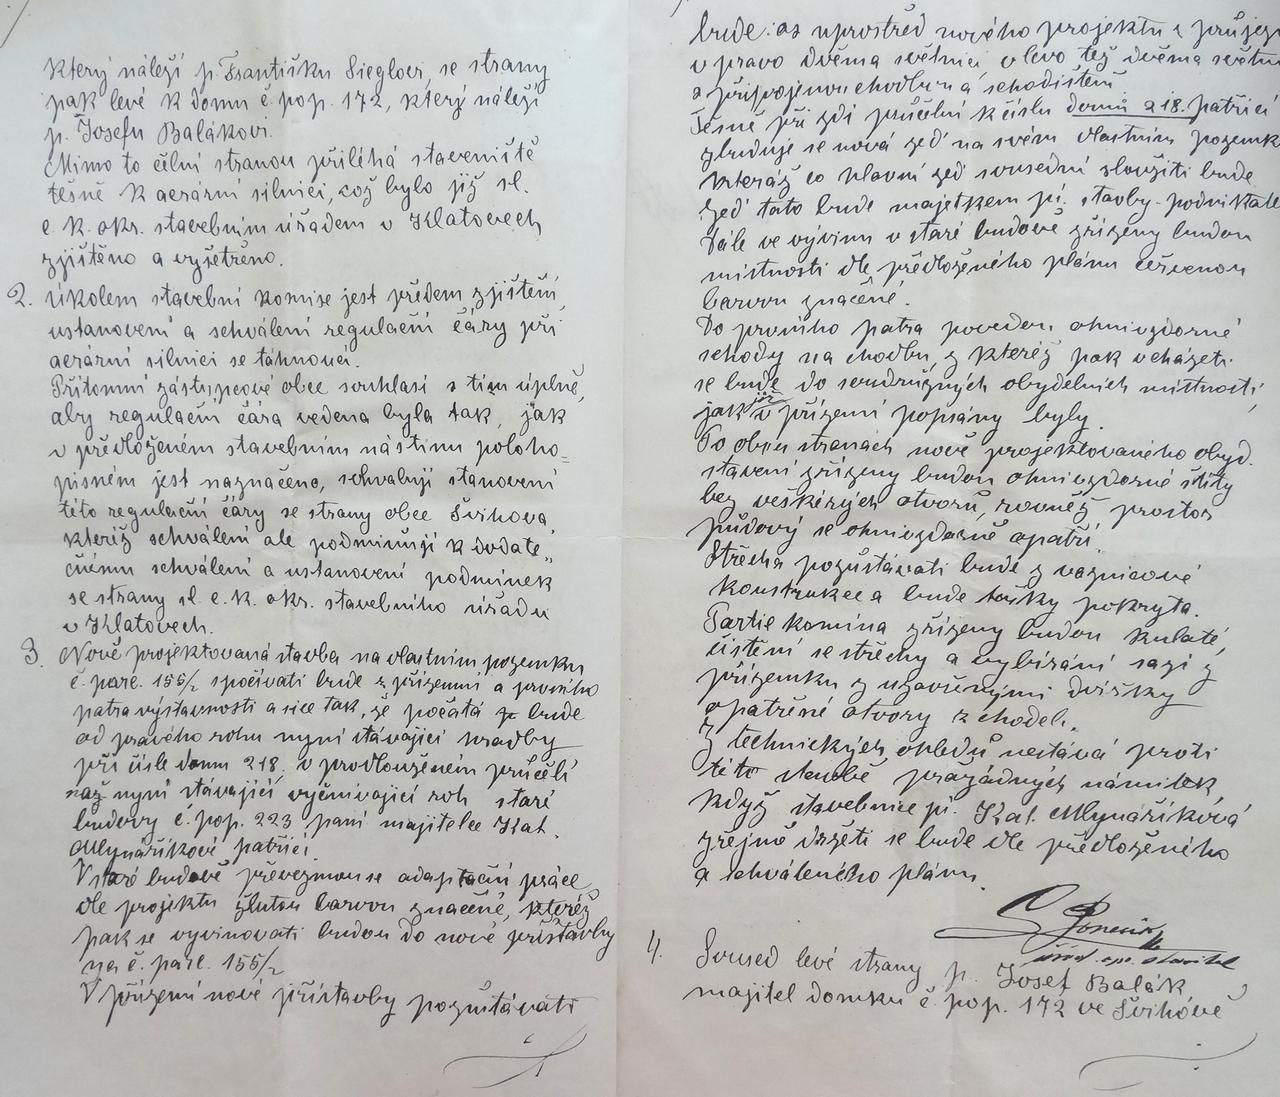 který náleží p. Františku Sieglovi, se strany
pak levé k domu č. pop. 172, který náleží
p. Josefu Balákovi.
Mimo to čelní stranou přiléhá staveniště
těsně k aerární silnici, což bylo již sl.
c. k. okr. stavebním úřadem v Klatovech
zjištěno a vyšetřeno.
2. Úkolem stavební komise jest předem zjištění,
ustanovení a schválení regulační čáry při
aerární silnici se táhnoucí.
Přítomní zástupcové obce souhlasí s tím úplně,
aby regulační čára vedena byla tak, jak
v předloženém stavebním nástinu poloho=
pisném jest naznačeno, schvalují stanovení
této regulační čáry se strany obce Švihova,
kteréž schválení ale podmiňují k dodate„
čnému schválení a ustanovení podmínek
se strany sl. c. k. okr. stavebního úřadu
v Klatovech.
3. Nově projektovaná stavba na vlastním pozemku
č. parc. 155/2 spočívati bude z přízemní a prvního
patra výstavnosti a sice tak, že počatá bude
od pravého rohu nyní stávající hradby
při čísle domu 218, v prodlouženém průčelí
až nyní stávající vyčnívající roh staré
budovy č. pop. 223 paní majitelce Kat.
Mlynaříkové patřící.
V staré budově převezmou se adaptační práce,
dle projektu žlutou barvou značené, kteréž
pak se vyvinovati budou do nové přístavby
na č. parc. 155/2
V přízemí nové přístavby pozustávati
bude: as uprostřed nového projektu z průjezdu
v pravo dvěma světnicí, v levo též dvěma světni
a připojenou chodbou a schodištěm.
Těsně při zdi průčelní k číslu domů 218. patřící
zbuduje se nová zeď na svém vlastním pozemk
kteráž co hlavní zeď sousední sloužiti bude.
Zeď tato bude majetkem pí. stavby-podnikatel
Dále ve vývinu v staré budově zřízeny budou
místnosti dle předloženého plánu červenou
barvou značené.
Do prvního patra povedou ohnivzdorné
schody na chodbu, z kteréž pak vcházeti
se bude do soudružných obydelních místností,
jak již v přízemí popsány byly.
Po obou stranách nově projektovaného obyd.
stavení zřízeny budou ohnivzdorné štíty
bez veškerých otvorů, rovněž prostor
půdový se ohnivzdorně opatří.
Střecha pozůstávati bude z vaznicové
konstrukce a bude tašky pokryta.
Partie komína zřízeny budou kulaté,
čistění se střechy a vybírání sazí z
přízemku z uzavřenými dvířky
opatřené otvory z chodeb.
Z technických ohledů nestává proti
této stavbě pražádných námitek,
když stavebnice pí. Kat. Mlynaříková
zřejmě držeti se bude dle předloženého
a schváleného plánu.
stavitel
4. Soused levé strany p. Josef Balák,
majitel domku č. pop. 172 ve Švihově